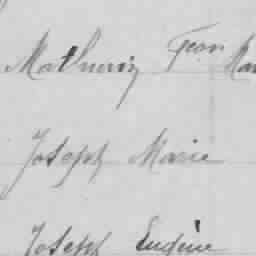 Mathurin Jean Mar
Joseph Marie
Joseph Eugène